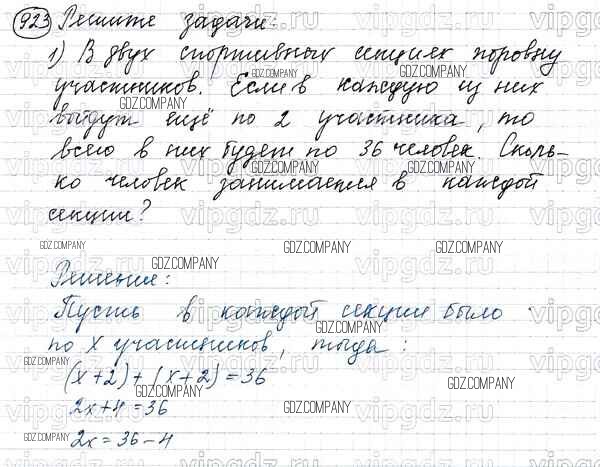 923 Решите задачи:
1) В двух спортивных секциях поровну
участников. Если в каждую из них
войдут ещё по 2 участника, то
всего в них будет по 36 человек. Сколь-
ко человек занимается в каждой
секции?
Решение:
Пусть в каждой секции было
по x участников, тогда:
(x+2)+(x+2)=36
2x+4=36
2x=36-4